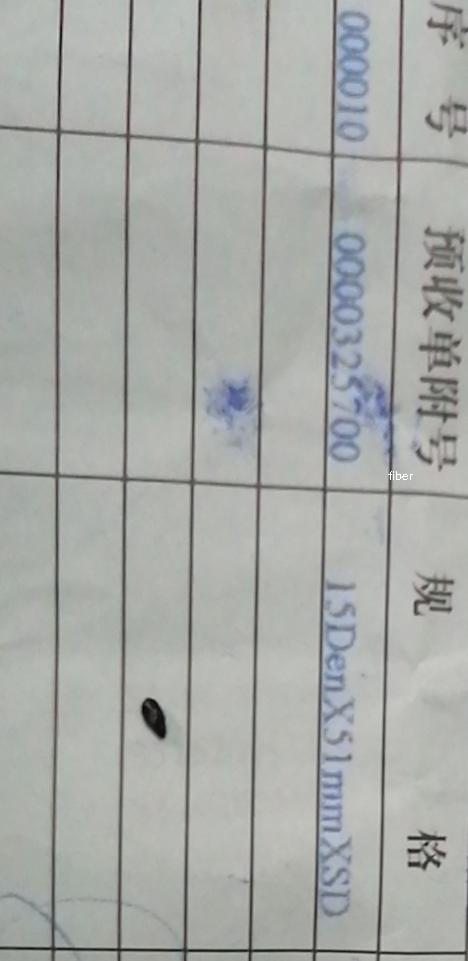 序 号 预收单附号 规 格
000010 0000325700 15DenX51mmXSD
fiber